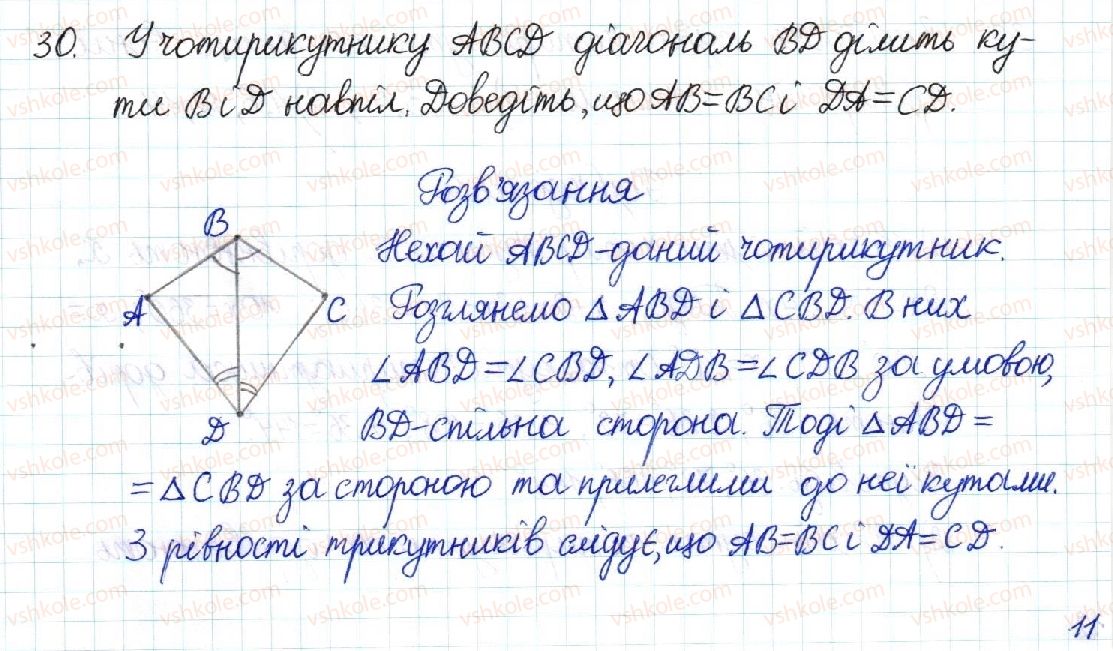 30. У чотирикутнику ABCD діагональ BD ділить ку-
ти B і D навпіл. Доведіть, що AB=BC і DA=CD.
Розв'язання
B
Нехай ABCD-даний чотирикутник.
A
C
Розглянемо △ABD і △CBD. В них
∠ABD=∠CBD, ∠ADB=∠CDB за умовою,
D
BD-спільна сторона. Тоді △ABD=
=△CBD за стороною та прилеглими до неї кутами.
З рівності трикутників слідує, що AB=BC і DA=CD.
11